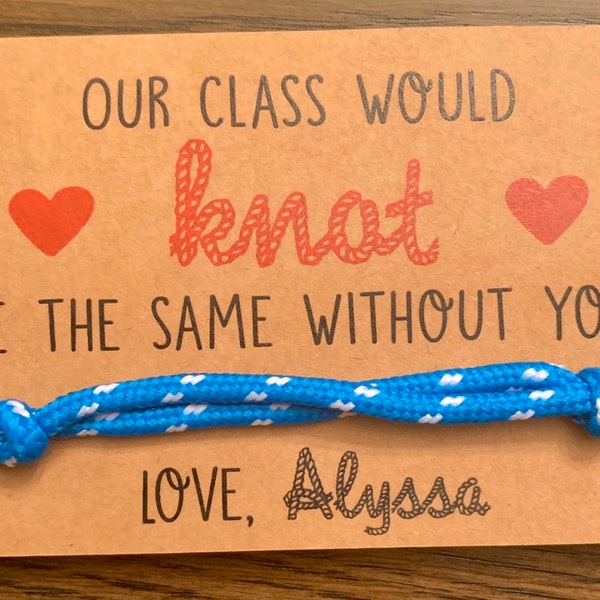 OUR CLASS WOULD
knot
E THE SAME WITHOUT YO
LOVE, Alyssa